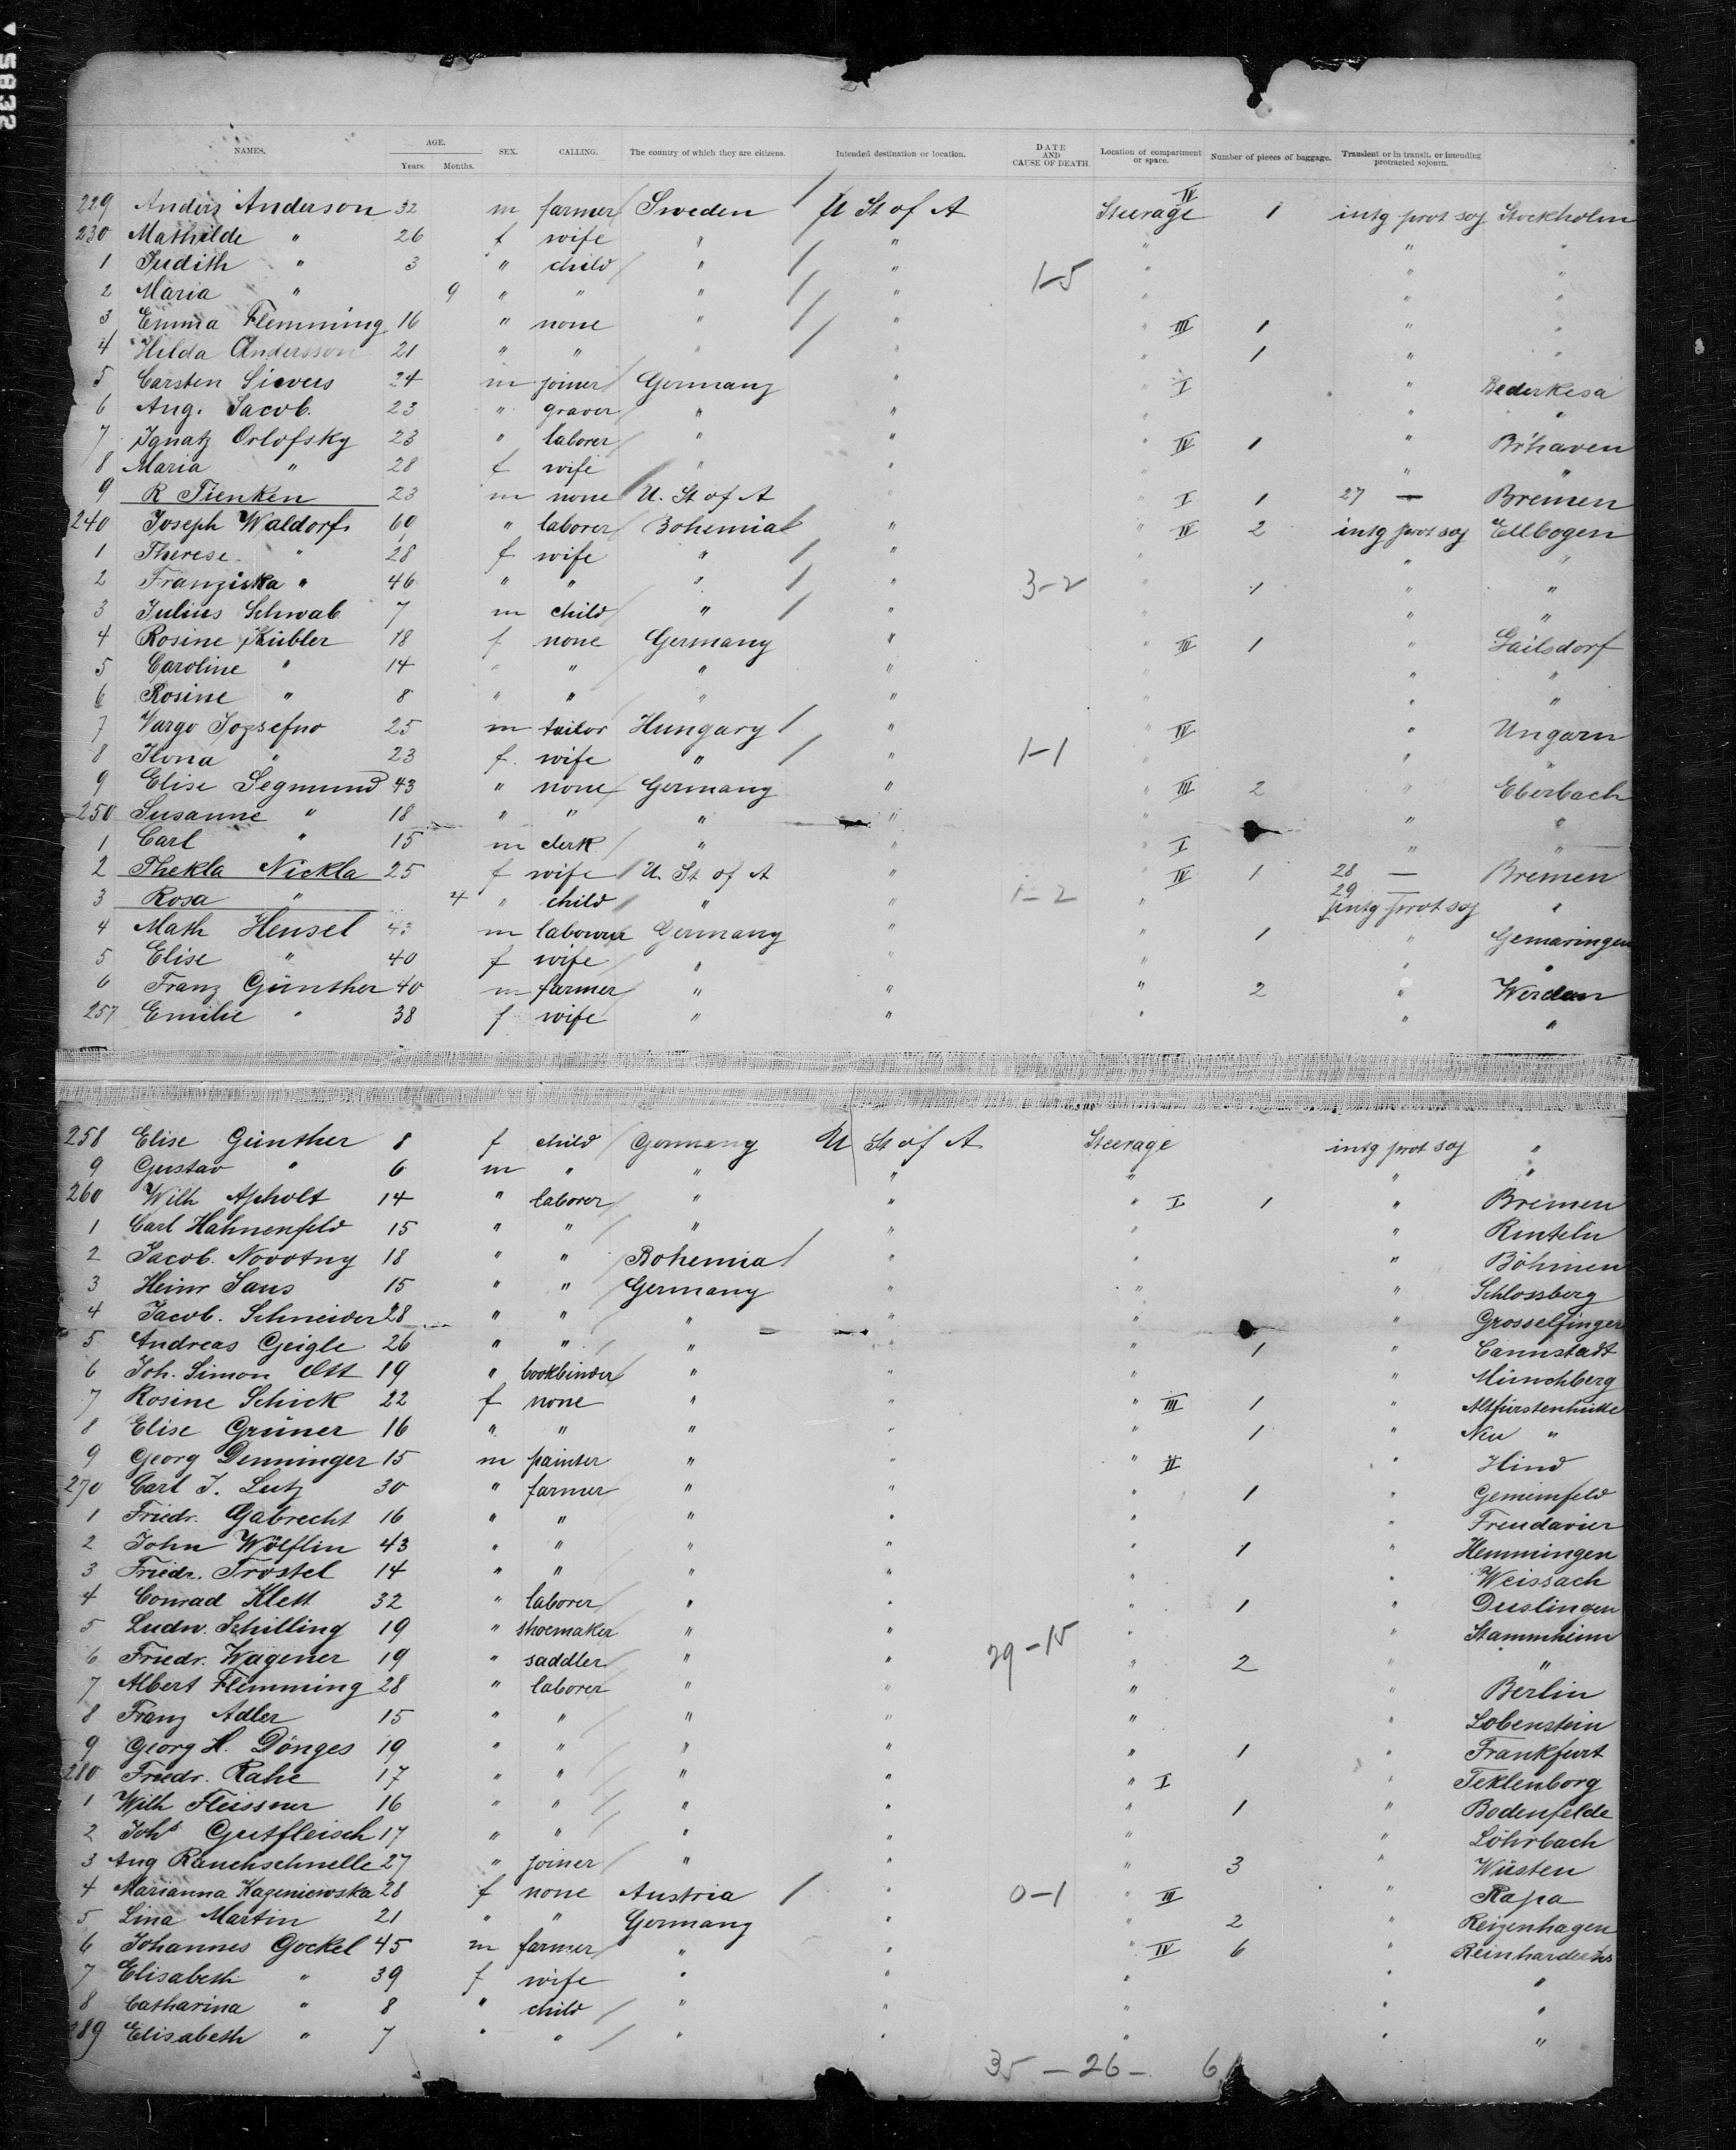 5832
2
NAMES. AGE. Years. Months. SEX. CALLING. The country of which they are citizens. Intended destination or location. DATE AND CAUSE OF DEATH. Location of compartment or space. Number of pieces of baggage. Transient or in transit, or intending protracted sojourn.
229 Anders Anderson 32 m farmer Sweden U St of A Steerage IV 1 intg prot soj Stockholm
230 Mathilde " 26 f wife " " " " "
1 Judith " 3 " child " " " " "
2 Maria " 9 " " " " 1-5 " " "
3 Emma Flemming 16 " none " " " III 1 " "
4 Hilda Andersson 21 " " " " " 1 " "
5 Carsten Sievers 24 m joiner Germany " " I " Bederkesa
6 Aug. Jacob. 23 " graver " " " " "
7 Ignatz Orlofsky 23 " laborer " " " IV 1 " Br'haven
8 Maria " 28 f wife " " " " "
9 R Tienken 23 m none U. St of A " " I 1 27 — Bremen
240 Joseph Waldorf 60 " laborer Bohemia " " IV 2 intg prot soj Ellbogen
1 Therese " 28 f wife " " " " "
2 Franziska " 46 " " " " 3-2 " 1 " "
3 Julius Schwab 7 m child " " " " "
4 Rosine Kübler 18 f none Germany " " III 1 " Gailsdorf
5 Caroline " 14 " " " " " " "
6 Rosine " 8 " " " " " " "
7 Vargo Jozsefno 25 m tailor Hungary " " IV " Ungarn
8 Ilona " 23 f. wife " " 1-1 " " "
9 Elise Segmund 43 " none Germany " " III 2 " Eberbach
250 Susanne " 18 " " " " " " "
1 Carl " 15 m clerk " " " I " "
2 Thekla Nickla 25 f wife U. St of A " " IV 1 28 — Bremen
3 Rosa " 4 " child " " 1-2 " 29 — intg prot soj "
4 Math Hensel 43 m labourer Germany " " 1 " Gemaringen
5 Elise " 40 f wife " " " " "
6 Franz Günther 40 m farmer " " " 2 " Werdau
257 Emilie " 38 f wife " " " " "
258 Elise Günther 8 f child Germany U St of A Steerage intg prot soj "
9 Gustav " 6 m " " " " " "
260 Wilh Apholt 14 " laborer " " " I 1 " Bremen
1 Carl Hahnenfeld 15 " " " " " " Rinteln
2 Jacob. Novotny 18 " " Bohemia " " " Böhmen
3 Heinr Saus 15 " " Germany " " " Schlossberg
4 Jacob. Schneider 28 " " " " " " Grosselfingen
5 Andreas Geigle 26 " " " " " 1 " Cannstadt
6 Joh. Simon Ott 19 " bookbinder " " " " Münchberg
7 Rosine Schick 22 f none " " " III 1 " Altfürstenhütte
8 Elise Grüner 16 " " " " " 1 " Neu "
9 Georg Denninger 15 m painter " " " II " Hind
270 Carl J. Lutz 30 " farmer " " " 1 "
1 Friedr. Gabrecht 16 " " " " " "
2 John Wölflin 43 " " " " " 1 " Hemmingen
3 Friedr. Trostel 14 " " " " " " Weissach
4 Conrad Klett 32 " laborer " " " 1 " Duslingen
5 Ludw. Schilling 19 " shoemaker " " " " Stammheim
6 Friedr. Wagener 19 " saddler " " 29-15 " 2 " "
7 Albert Flemming 28 " laborer " " " " Berlin
8 Franz Adler 15 " " " " " " Lobenstein
9 Georg H. Dönges 19 " " " " " 1 " Frankfurt
280 Friedr. Rahe 17 " " " " " I " Teklenborg
1 Wilh Fleissner 16 " " " " " 1 " Bodenfelde
2 Johs Gutfleisch 17 " " " " " " Löhrbach
3 Aug Rauchschnelle 27 " joiner " " " 3 " Wüsten
4 Marianna Kageniewska 28 f none Austria " 0-1 " III " Rapa
5 Lina Martin 21 " " Germany " " 2 " Reizenhagen
6 Johannes Gockel 45 m farmer " " " IV 6 "
7 Elisabeth " 39 f wife " " " " "
8 Catharina " 8 " child " " " " "
289 Elisabeth " 7 " " " " " " "
35 - 26 - 6